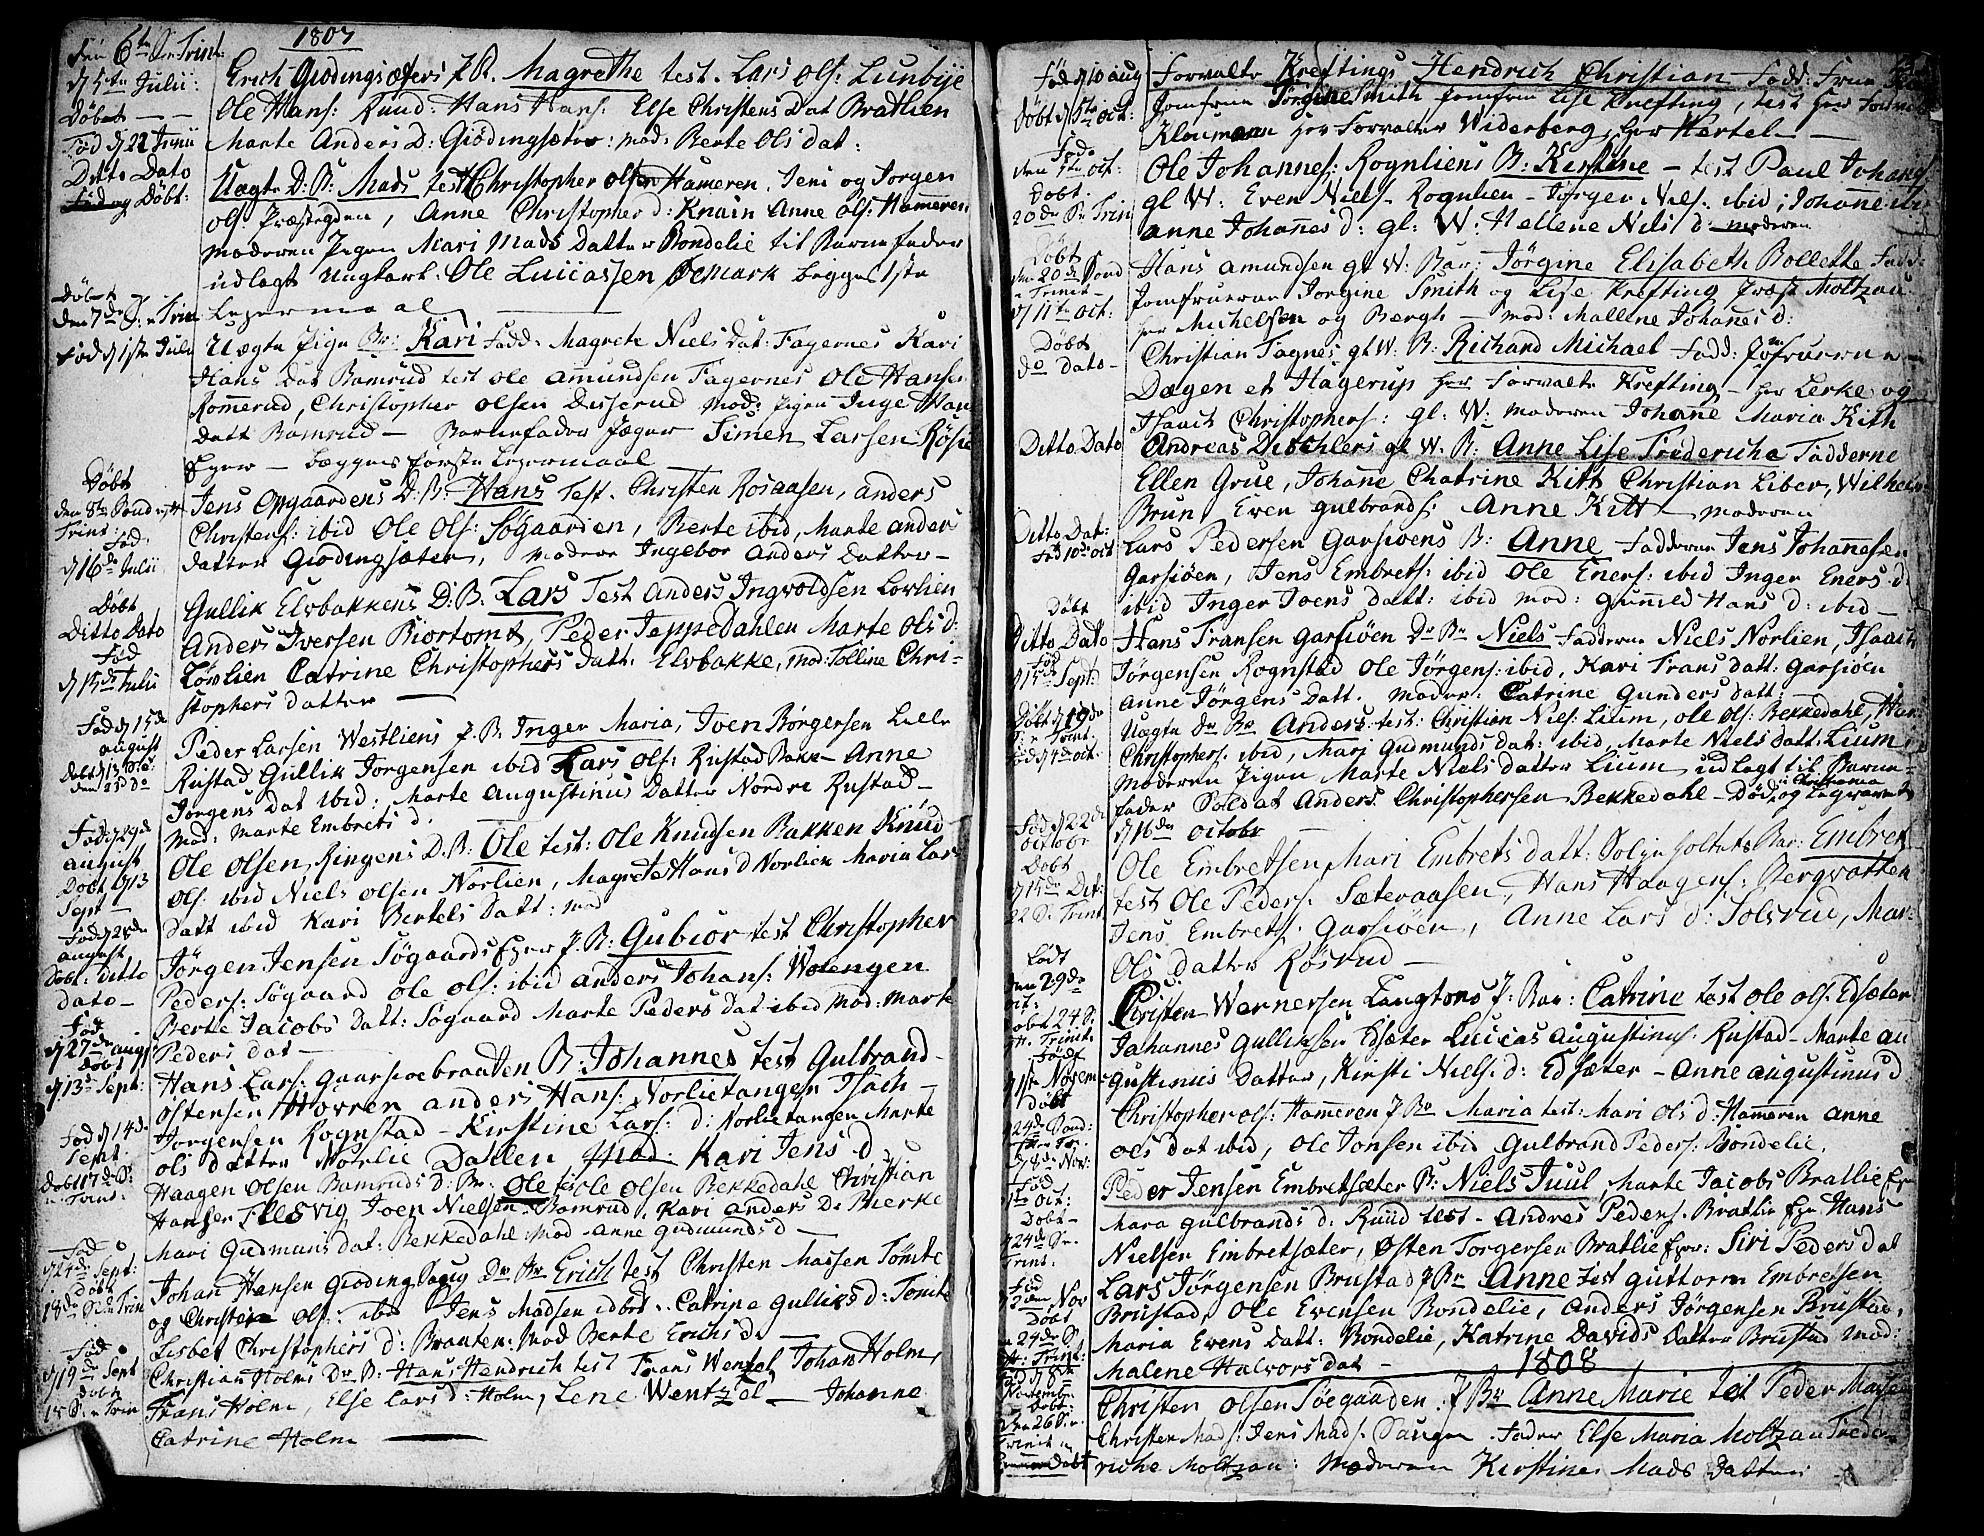 1807
den 6te S. n Trint:
d 5te Julii:
Døbet
Erich Giødingsæters P. B. Magrethe test. Lars Ols: Lunbye
Ole Hans: Ruud: Hans Hans: Else Christens Dat Bratlien
Marte Anders D: Giødingsæter: mod: Berte Ols dat:
Død d 22 Junii
Ditto Dato
Fød og Døbt:
Uægte D: B: Mads test Christopher Olsen Hameren, Jens og Jørgen
Ols: Præstegden, Anne Christopher d: Knain Anne Ols: Hameren
Moderen Pigen Mari Mads Datter Bondelie til Barnefader
udlagt Ungkarl: Ole Luccassen Demark begges 1ste
Leyermaal
Døbt
den 7de S. n Trin
Fød d 1ste Julii
Uægte Pige Br: Kari Fadd: Magrete Niels Dat: Fagernes Kari
Hans Dat Bamrud test Ole Amundsen Fagernes Ole Hansen
Romerud, Christopher Olsen Disserud Mod: Pigen Inge Han
Datt Bamrud — Barnefader Jæger Simen Larsen Røse
Eyer — begges første Leyermaal
Døbt
den 8te Sond n
Trint:
Fød
d 16de Julii
Jens Opgaardens D: B: Hans Test. Christen Rosaasen, Anders
Christens: ibid Ole Ols: Søgaarden, Berte ibid, Marte Anders
Datter Giødingsæter, Modere Ingebor Anders Datter —
Døbt
Ditto Dato
Fød
d 15de Julii
Gullik Elvbakkens D: B: Lars Test Anders Ingvoldsen Lovlien
Anders Iversen Biortomt, Peder Jeppedahlen Marte Ols d:
Løvlien Catrine Christophers Datt. Elvbakke, Mod: Tolline Chri-
stophers datter
Fød d 15de
august
den 23 do
Peder Larsen Westliens P. B. Inger Maria, Joen Børgersen Lille
Rustad Gullik Jorgensen ibid Lars Ols: Rustad Bakke Anne
Jørgens Dat ibid: Marte Augustinus Datter Nordre Rustad —
Mod: Marte Embrets d:
Fød d 29de
august
Døbt d 13
Sept —
Ole Olsen, Ringens D: B: Ole test: Ole Knudsen Bakken Knud
Ols: ibid Niels Olsen Norlien, Magrete Hans d Norlien Maria Lars
Datt ibid Kari Bertels Datt: Mod
Fød d 28de
august
Døbt: Ditto
Dato —
Jørgen Jensen Søgaards Eyer P. B: Gubior test Christopher
Peders: Søgaard Ole Ols: ibid Anders Johans: Wolengen
Berte Jacobs Datt: Søgaard Marte Peders Dat ibid Mod: Marte
Peders dat
Fød
d 27de aug
Døbt
d 13de Sept:
Hans Lars: Gaarsioebraaten B: Johannes test Gulbrand
Ostensen Hovren Anders Hans: Norlietangen Isach
Jorgensen Rognstad — Kirstine Lars: d: Norlietangen Marte
Ols datter Norlie Dahlen Mod: Kari Jens d
Fød d 14de
Sept.
Døbt 17de S:
n Trint:
Haagen Olsen Bamruds D: Br: Ole test Ole Olsen Bekkedahl Christian
Hansen Flesvig Joen Nielsen Bamrud, Kari Anders D: Bierke
Mari Gudmuns Dat: Bekkedahl Mod Anne Gudmunds d —
Fød
d 4de Sept:
Døbt
18de S. n Trin
Johan Hansen Gioding Saug Dr Br Erich test Christen Madsen Tømte
og Christian Ols: ibid Jens Madsen ibid. Catrine Gulliks D: Tømte
Lisbet Christophers D: Braaten: Mod Berte Erichs D.
Fød
d 19de Sept
Døbt
18 S. n Trin
Christian Holms Dr. B: Hans Hendrich test Frans Wentzel Johan Holm,
Frans Holm, Else Lars d: Holm, Lene Wentzel — Johanne
Catrine Holm
Fød d 10 aug
Døbt d 5te oct:
Forvalte Kreftings, Hendrich Christian Fadd: Frue
Jomfrue Jørgine Smith Jomfrue Lise Krefting, test Her Forvalt
Kleumann Her Forvalter Widerberg, Her Hertel —
Født
den 5te oct:
Døbt
20de S. Trin
Ole Johannes: Rognliens B: Kirstine — test Paul Johans:
gl W: Even Niels Rognlien — Jørgen Niels: ibid, Johanne
Anne Johannes d: gl: W: Hellene Nils d Moderen
Døbt
den 20de Sond
n Trinit —
d 11te oct:
Hans Amundsen gl W: Bar: Jørgine Elisabeth Bollette Fadd:
Jomfruerne Jorgine Smith og Lise Krefting Præst Moltzau
Her Michelsen og Bergh — Mod: Mallene Johannes d:
Døbt
do Dato —
Christian Fagnes gl W: B: Richard Michael Fadd: Jomfruerne
Dægen et Hagerup Her Forvalte Krefting — Her Lerke og
Isaach Christophers: gl: W: Moderen Johane Maria Kith
Ditto Dato
Andreas Dischlers gl W. B: Anne Lise Fredericha Fadderne
Ellen Grue, Johane Chatrine Kitt Christian Liber, Wilhelm
Brun, Even Gulbrands: Anne Kitt — Moderen
Ditto Dat:
Fød 10de oct
Lars Pedersen Garsioens B: Anne Fadderne Jens Johannesen
Garsiøen, Jens Embrets: ibid Ole Eners: ibid Inger Eners d:
ibid Inger Joens Datt: ibid Mod: Gunnild Hans d: ibid —
Døbt
Ditto Dato
Fød
d 15de Sept:
Hans Fransen Garsiøen Dr Br Niels Fadderne Niels Norlien, Isaach
Jørgensen Rognstad Ole Jørgens: ibid, Kari Frans Datt: Garsiøen
Anne Jørgens Datt. Moder: Catrine Gunders Datt:
Døbt d 19de
S. n Trint.
Fød d 4de oct.
Uægte Dr Br Anders test: Christian Niels: Lium, Ole Ols: Bekkedahl, Han
Christophers: ibid, Mari Gudmunds Dat: ibid, Marte Niels Datt: Lium
Moderen Pigen Marte Niels Datter Lium udlagt til Barne-
fader Soldat Anders Christophersen Bekkedahl — Død i Christiania og begravet
d 16de Octobr
Fød d 22de
Octobr
Døbt
22 S. Trint
Ole Embretsen, Mari Embrets Datt: Solye Holtets Bar: Embret
test Ole Peders: Sæteraasen, Hans Haagens: Bergratten
Jens Embrets: Garsiøen, Anne Lars d: Solsrud, Mar:
Ols Datter Rosrud —
Født
den 29de
oct:
Døbt 24 S.
n. Trinit.
Christen Wernersen Langtons P: Bar: Catrine test Ole Ols: Edsæter
Johannes Gulliksen Edsæter Luccas Augustinus Rustad — Marte Au
gustinus Datter, Kirsti Niels: d: Edsæter — Anne Augustinus d
Født
d 1ste Novem
Døbt
24de Sond:
d 8de Nov:
Christopher Ols: Hameren P Br Maria test: Mari Ols d: Hameren Anne
Ols dat ibid, Ole Jonsen ibid Gulbrand Peders: Bondelie.
Født
Oct:
Døbt —
24de S.
Trint.
Peder Jensen Embretsæter B: Niels Juul, Marte Jacobs Bratlie Eyer
Mara Gulbrands d: Ruud test — Andres Peders. Bratlie Eye Hans
Nielsen Embretsæter, Østen Torgersen Bratlie Eyer: Siri Peders dat
Fød
Nov
Døbt
24de S.
n: Trint:
Lars Jørgensen Brustad P Br Anne test Guttorm Embretsen
Brustad, Ole Evensen Bondelie, Anders Jørgensen Brustad,
Maria Evens Datt: Bondelie, Katrine Davids Datter Brustad Mod:
Malene Halvors Dat —
1808
Fød d 8de
Novembr.
Døbt:
den 26 S. n
Trinit
Christen Olsen Søegaaden. P Br Anne Marie test Peder Madsen
Christen Mads: Jens Mads: Saugen. Fader Else Maria Moltzau Frede-
riche Moltzau: Moderen Kirstine Mads Datter